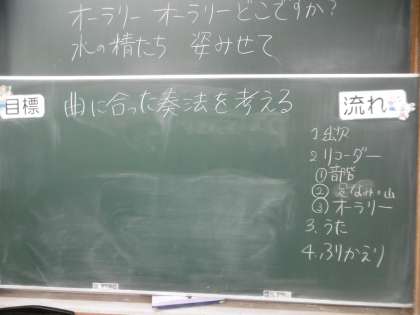 オーラリー オーラリーどこですか?
水の精たち 姿みせて
目標
曲に合った奏法を考える
流れ
1 出欠
2 リコーダー
① 音階
② 足なみ・山
③ オーラリー
3. うた
4. ふりかえり